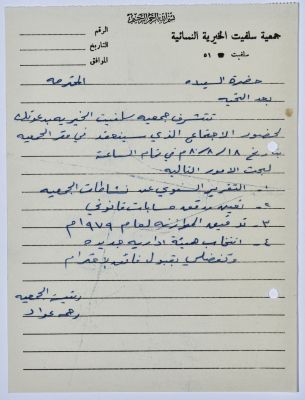 بسم الله الرحمن الرحيم
جمعية سلفيت الخيرية النسائية
سلفيت ☎ ٥١
الرقم
التاريخ
الموافق
حضرة السيده المحترمه
بعد التحيه
تتشرف جمعيه سلفيت الخيريه بدعوتك
لحضور الاجتماع الذي سينعقد في مقر الجمعيه
بتاريخ ١٨/٨/ م في تمام الساعة
لبحث الامور التاليه
١- التقرير السنوي عن نشاطات الجمعيه
٢- تعيين مدقق حسابات قانوني
٣- تدقيق الموازنه لعام ١٩٧٩م
٤- انتخاب هيئة اداريه جديده
وتفضلي بقبول فائق الاحترام
رئيسة الجمعيه
عواد